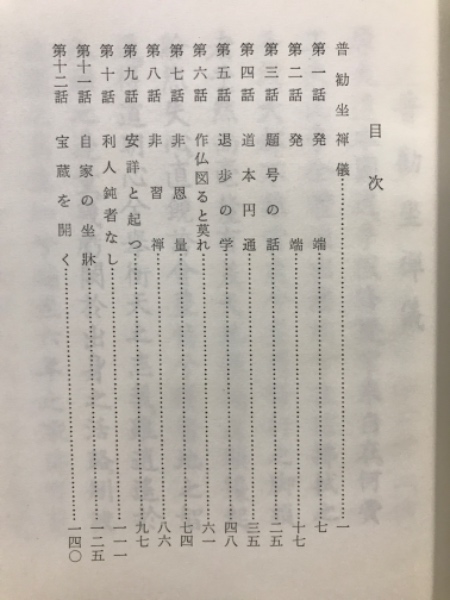 目次
普勧坐禅儀……一
第一話 発端……七
第二話 発端……十七
第三話 題号の話……二五
第四話 道本円通……三五
第五話 退歩の学……四八
第六話 作仏図ると莫れ……六一
第七話 非恩量……七四
第八話 非習禅……八六
第九話 安詳と起つ……九七
第十話 利人鈍者なし……一一一
第十一話 自家の坐牀……一二五
第十二話 宝蔵を開く……一四〇